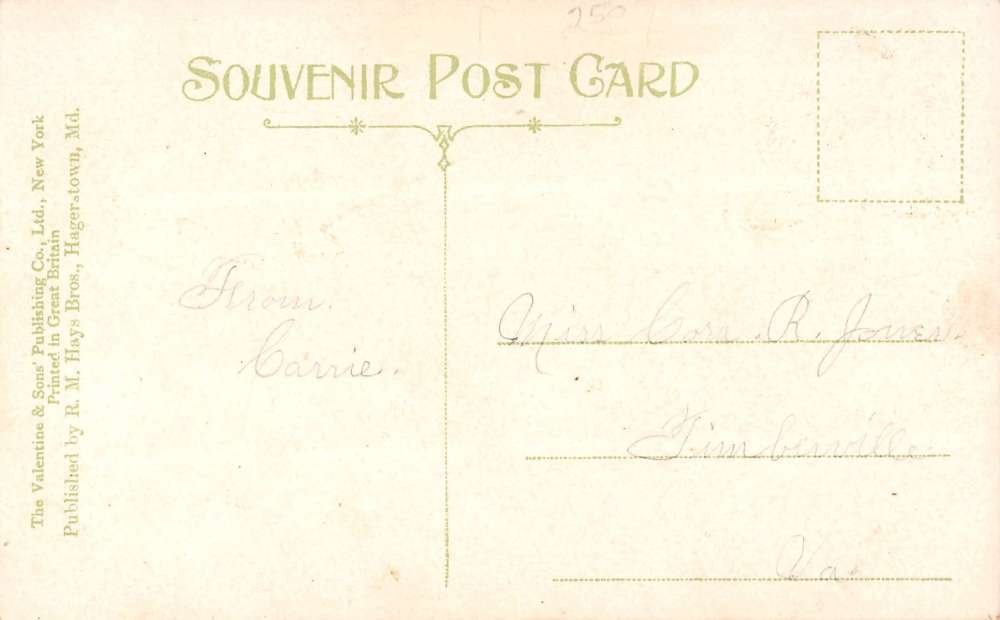 250
SOUVENIR POST CARD
The Valentine & Sons' Publishing Co., Ltd., New York
Printed in Great Britain
Published by R. M. Hays Bros., Hagerstown, Md.
From.
Carrie.
Miss Cora R. Jones.
Timberville
Va.